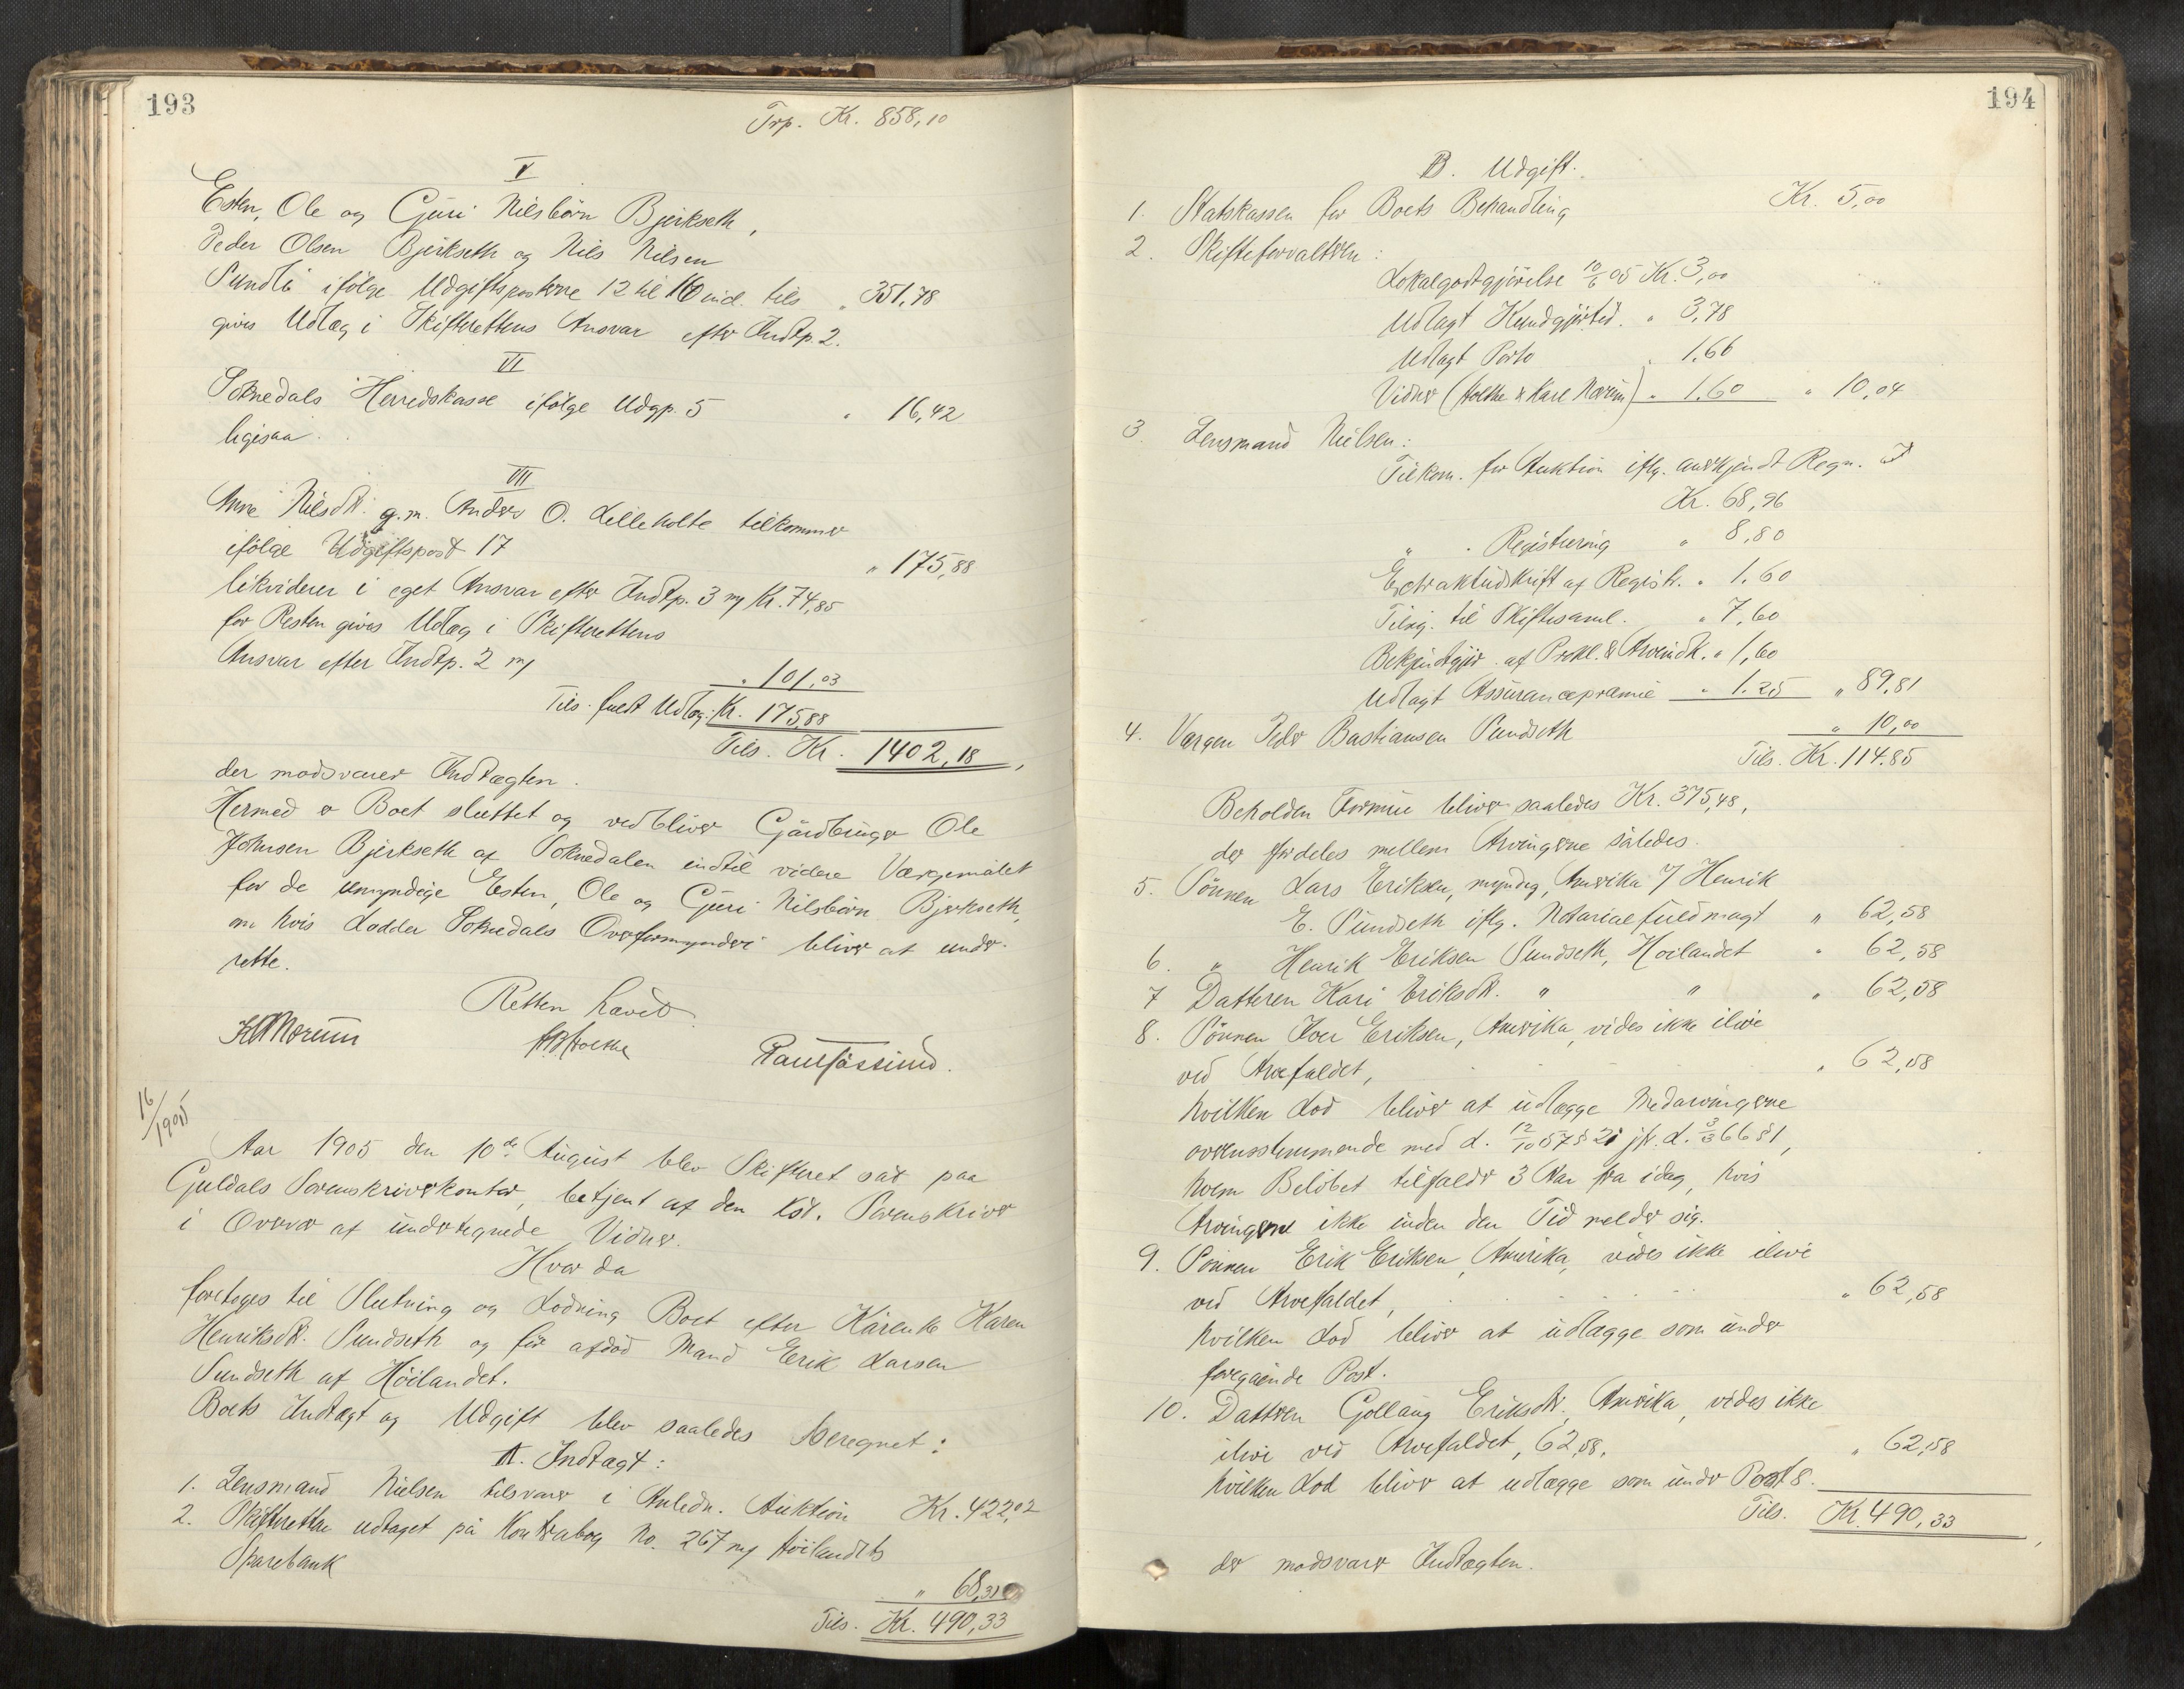 193
Trp. Kr. 858,10
V
Esten, Ole og Guri Nilsbörn Bjerkseth,
Peder Olsen Bjerkseth og Nils Nilsen
Sundli ifölge Udgiftsposterne 12 til 16 incl. tils " 351,78
gives Udlæg i Skifterettens Ansvar efter Indtp. 2.
VI
Soknedals Herredskasse ifölge Udgp. 5 " 16,42
ligesaa.
VII
Anne Nilsdtr. g.m. Anders O. Lilleholte tilkommer
ifölge Udgiftspost 17 " 175,88
likviderer i eget Ansvar efter Indtp. 3 m/ Kr. 74,85
for Resten gives Udlæg i Skifterettens
Ansvar efter Indtp. 2 m/ " 101,03
Tils. fuldt Udlæg: Kr. 175,88
Tils. Kr. 1402,18,
der modsvarer Indtægten.
Hermed er Boet sluttet og vedbliver Gårdbruger Ole
Johnsen Bjerkseth af Soknedalen indtil videre Værgemålet
for de umyndige Esten, Ole og Guri Nilsbörn Bjerkseth,
om hvis Lodder Soknedals Overformynderi bliver at under-
rette.
Retten hævet.
16/1905
Aar 1905 den 10de August blev Skifteret sat paa
Guldals Sorenskriverkontor, betjent af den kst. Sorenskriver
i Overvær af undertegnede Vidner.
Hvor da
foretoges til Slutning og Lodning Boet efter Kårenke Karen
Henriksdtr. Sundseth og för afdöd Mand Erik Larsen
Sundseth af Höilandet.
Boets Indtægt og Udgift blev saaledes beregnet:
A. Indtægt:
1. Lensmand Nielsen tilsvarer i Anledn. Auktion Kr. 422,02
2. Skifteretten udtaget på Kontrabog No. 267 m/ Höilandets
Sparebank " 68,31
Tils. Kr. 490,33
194
B. Udgift.
1. Statskassen for Boets Behandling Kr. 5,00
2. Skifteforvalteren:
Lokalgodtgjörelse 10/6 05 Kr. 3,00
Udlagt Kundgjörtid. " 3,78
Udlagt Porto " 1,66
Vidner (Holthe & Karl Morum) " 1,60 " 10,04
3. Lensmand Nielsen:
Tilkom. for Auktion iflg. anerkjendt Regn.
Kr. 68,96
" " Registrering " 8,80
Extraktudskrift af Registr. " 1,60
Tilsig. til Skiftesaml. " 7,60
Bekjendtgjör. af Prokl. & Arveindk. " 1,60
Udlagt Assurancepræmie " 1.25 " 89,81
4. Værgen Peder Bastiansen Sundseth " 10,00
Tils. Kr. 114.85
Beholden Formue bliver saaledes Kr. 375,48,
der fordeles mellem Arvingerne således.
5. Sönnen Lars Eriksen, myndig, Amerika v/ Henrik
E. Sundseth iflg. Notarialfuldmagt " 62,58
6. " Henrik Eriksen Sundseth, Höilandet " 62,58
7 Datteren Kari Eriksdtr. " " " 62,58
8. Sönnen Iver Eriksen, Amerika, vides ikke ilive
ved Arvefaldet, " 62,58
hvilken Lod bliver at udlægge Medarvingerne
overensstemmende med L. 12/10 57 § 21 jfr. L. 3/3 66 § 1,
hvem Belöbet tilfalder 3 Aar fra idag, hvis
Arvingerne ikke inden den Tid melder sig.
9. Sönnen Erik Eriksen, Amerika, vides ikke ilive
ved Arvefaldet, " 62,58
hvilken Lod bliver at udlægge som under
foregående Post.
10. Datteren Gollaug Eriksdtr., Amerika, vides ikke
ilive ved Arvefaldet, 62,58. " 62,58
hvilken Lod bliver at udlægge som under Post 8.
Tils. Kr. 490,33,
der modsvarer Indtægten.